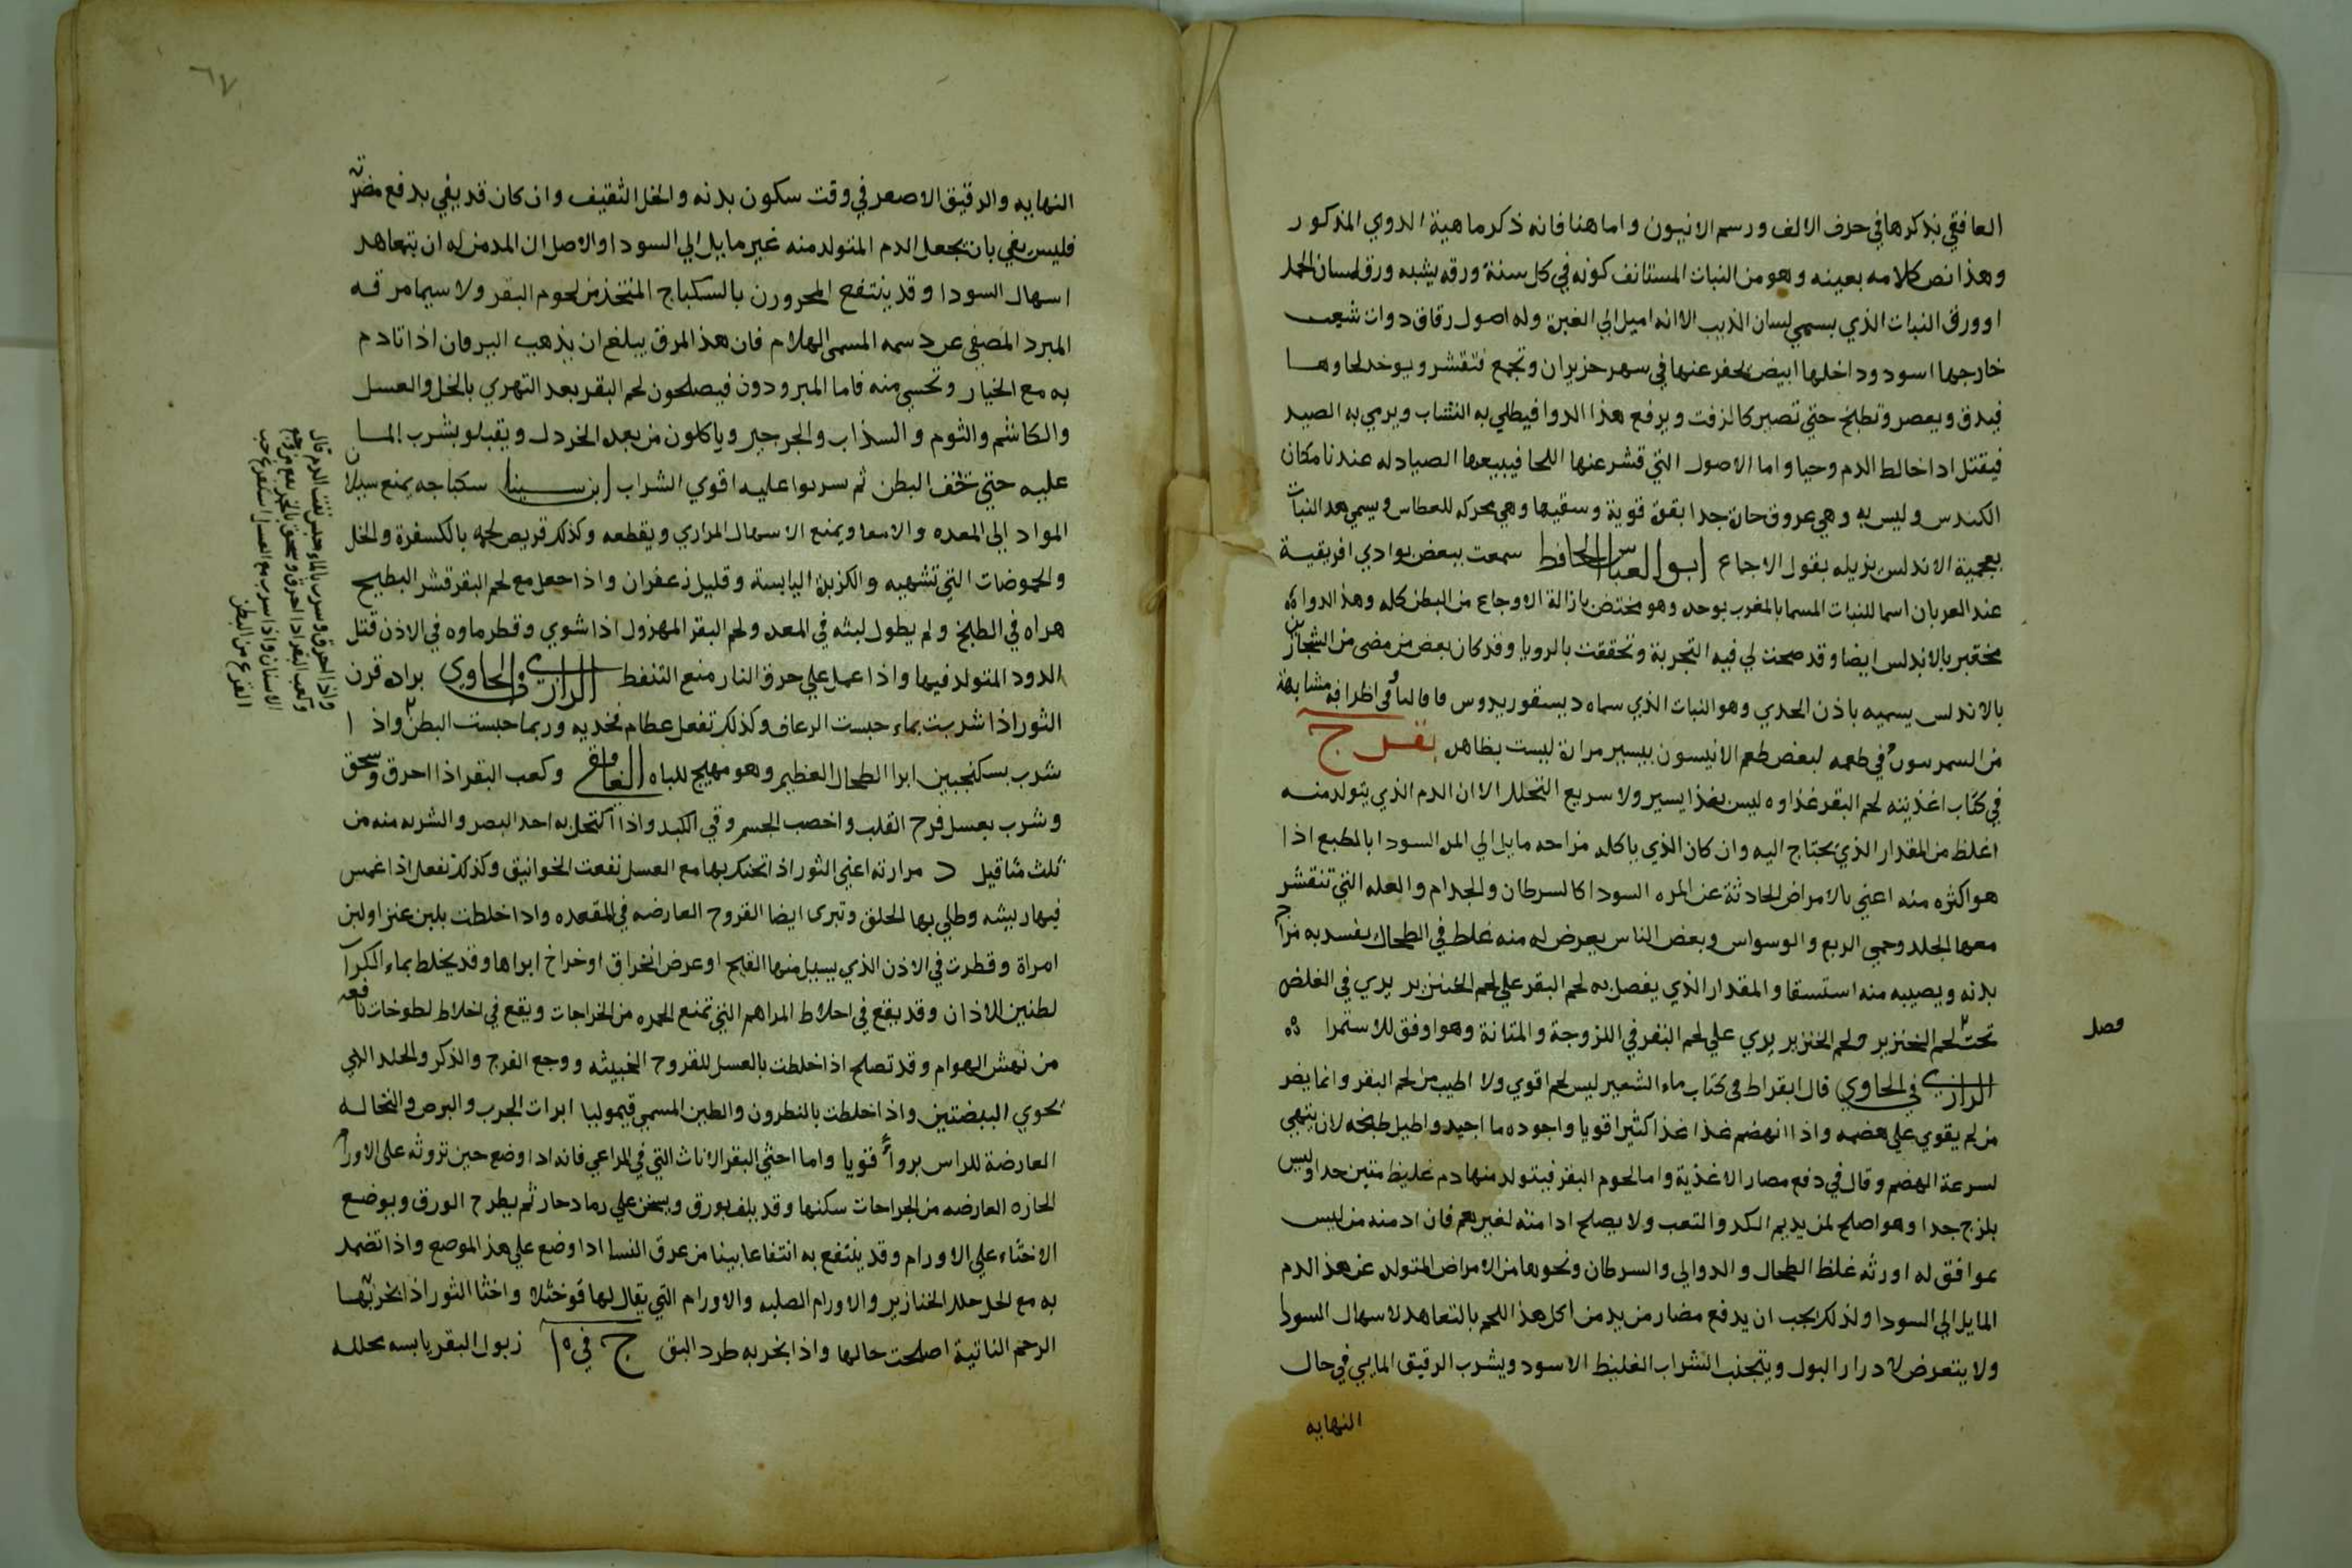 الغافقي بذكرها في حرف الالف ورسم الانيون واما هنا فانه ذكر ماهية الدوي المذكور
وهذا نص كلامه بعينه وهو من النبات المستانف كونه في كل سنة ورقه يشبه ورق لسان الحمل
او ورق النبات الذي يسمي لسان الذيب الا انه اميل الي الغبرة وله اصول رقاق ذوات شعب
خارجها اسود وداخلها ابيض يحفر عنها في شهر حزيران وتجمع فتقشر ويوخذ لحاوها
فيدق ويعصر وتطبخ حتي تصير كالزفت ويرفع هذا الدوا فيطلي به النشاب ويرمي به الصيد
فيقتل اذا خالط الدم وحيا واما الاصول التي قشر عنها اللحا فيبيعها الصيادله عندنا مكان
الكندس وليس به وهي عروق حارة جدا بقوة قوية وسقيها وهي محركه للعطاس ويسمي هذا النبات
بعجمية الاندلس بزيله بقول الاجاع ابو العباس الحافظ سمعت ببعض بوادي افريقية
عند العربان اسما للنبات المسما بالمغرب بوحد وهو مختص بازالة الاوجاع من البطن كله وهذا الدواء
مختبر بالاندلس ايضا وقد صحت لي فيه التجربة وتحققت بالرويا وقد كان بعض من مضي من الشجارين
بالاندلس يسميه باذن الجدي وهو النبات الذي سماه ديسقوريدوس في اطرافه مشابهة
من في طعمه لبعض طعم الانيسون بيسير مرارة ليست بظاهره بقر ج
في كتاب اغذيته لحم البقر غذاوه ليس بغذا يسير ولا سريع التحلل الا ان الدم الذي يتولد منه
اغلظ من المقدار الذي يحتاج اليه وان كان الذي ياكله مزاجه مايل الي المره السودا بالطبع اذا
هو اكثره منه اعني بالامراض الحادثة عن المره السودا كالسرطان والجدام والعله التي تنقشر
معها الجلد وحمي الربع والوسواس وبعض الناس يعرض له منه غلظ في الطحال يفسد به مزاج
بدنه ويصيبه منه استسقا والمقدار الذي يفضل به لحم البقر علي لحم الخنزير يري في الغلظ
تحت لحم الخنزير ولحم الخنزير يري علي لحم البقر في اللزوجة والمتانة وهو اوفق للاستمرا
فصل
الرازي في الحاوي قال ابقراط في كتاب ماء الشعير ليس لحم اقوي ولا اطيب من لحم البقر وانما يضر
من لم يقوي علي هضمه واذا انهضم غذا غذا كثيرا قويا واجوده ما اجيد واطيل طبخه لان ينتهي
لسرعة الهضم وقال في دفع مضار الاغذية واما لحوم البقر فيتولد منها دم غليظ متين جدا وليس
بلزج جدا وهو اصلح لمن يديم الكد والتعب ولا يصلح ادامته لغيرهم فان ادمنه من ليس
بموافق له اورثه غلظ الطحال والدوالي والسرطان ونحوها من الامراض المتولده عن هذا الدم
المايل الي السودا ولذلك يجب ان يدفع مضاره من يدمن اكل هذا اللحم بالتعاهد لاسهال السودا
ولا يتعرض لادرار البول ويتجنب الشراب الغليظ الاسود ويشرب الرقيق المايي في حال
النهايه
٦٧
النهايه والرقيق الاصفر في وقت سكون بدنه والخل الثقيف وان كان قد يفي بدفع مضرته
فليس يفي بان يجعل الدم المتولد منه غير مايل الي السودا والاصل ان المدمن له ان يتعاهد
اسهال السودا وقد ينتفع المحرورن بالسكباج المتخذ من لحوم البقر ولا سيما مرقه
المبرد المصفي عن دسمه المسمي الهلام فان هذا المرق يبلغ ان يذهب اليرقان اذا تادم
به مع الخيار وتحسي منه فاما المبرودون فيصلحون لحم البقر بعد التهري بالخل والعسل
والكاشم والثوم والسذاب والجرجير وياكلون من بعده الخردل ويقبلو بشرب الما
عليه حتي تخف البطن ثم شربوا عليه اقوي الشراب ابن سينا سكباجه يمنع سيلان
المواد الي المعده والامعا ويمنع الاسهال المراري ويقطعه وكذلك قريص لحمه بالكسفرة والخل
والحموضات التي تشبهه والكزبرة اليابسة وقليل زعفران واذا جعل مع لحم البقر قشر البطيخ
هراه في الطبخ ولم يطول لبثه في المعده ولحم البقر المهزول اذا شوي وقطر ماوه في الاذن قتل
الدود المتولد فيها واذا عمل علي حرق النار منع التنفط الرازي في الحاوي براده قرن
الثور اذا شربت بماء حبست الرعاف وكذلك تفعل عظام فخديه وربما حبست البطن واذا
شرب بسكنجبين ابرا الطحال العظيم وهو مهيج للباه الغافقي وكعب البقر اذا احرق وسحق
وشرب بعسل فرح القلب واخصب الجسم وقي الكبد واذا اكتحل به احد البصر والشربه منه من
ثلث مثاقيل د مرارته اعني الثور اذا تحنك بها مع العسل نفعت الخوانيق وكذلك تفعل اذا غمس
فيها ريشه وطلي بها الحلق وتبري ايضا القروح العارضه في المقعده واذا خلطت بلبن عنز او لبن
امراة وقطرت في الاذن الذي يسيل منها القيح او عرض انخراق او خراج ابراها وقد يخلط بماء الكراث
لطنين الاذان وقد يقع في اخلاط المراهم التي تمنع الحمره من الخراجات ويقع في اخلاط لطوخات نافعه
من نهش الهوام وقد تصلح اذا خلطت بالعسل للقروح الخبيثه ووجع الفرج والذكر والجلد الذي
يحوي البيضتين واذا خلطت بالنطرون والطين المسمي قيموليا ابرات الجرب والبرص والنخاله
العارضة للراس بروا قويا واما اخثي البقر الاناث التي في المراعي فانه اذا وضع حين تروثه علي الاورام
الحاره العارضه من الجراحات سكنها وقد يلف بورق ويسخن علي رماد حار ثم يطرح الورق ويوضع
الاخثاء علي الاورام وقد ينتفع به انتفاعا بينا من عرق النسا اذا وضع علي هذا الموضع واذا تضمد
به مع الخل حلل الخنازير والاورام الصلبه والاورام التي يقال لها واخثا الثور اذا بخر بها
الرحم الناتية اصلحت حالها واذا بخر به طرد البق ج في زبول البقر يابسه محلله
واذا احرق وشرب بالماء حبس نفث الدم قال
وكعب البقر اذا احرق وسحق
الاسنان واذا شرب مع العسل استفرغ حب
القرع من البطن